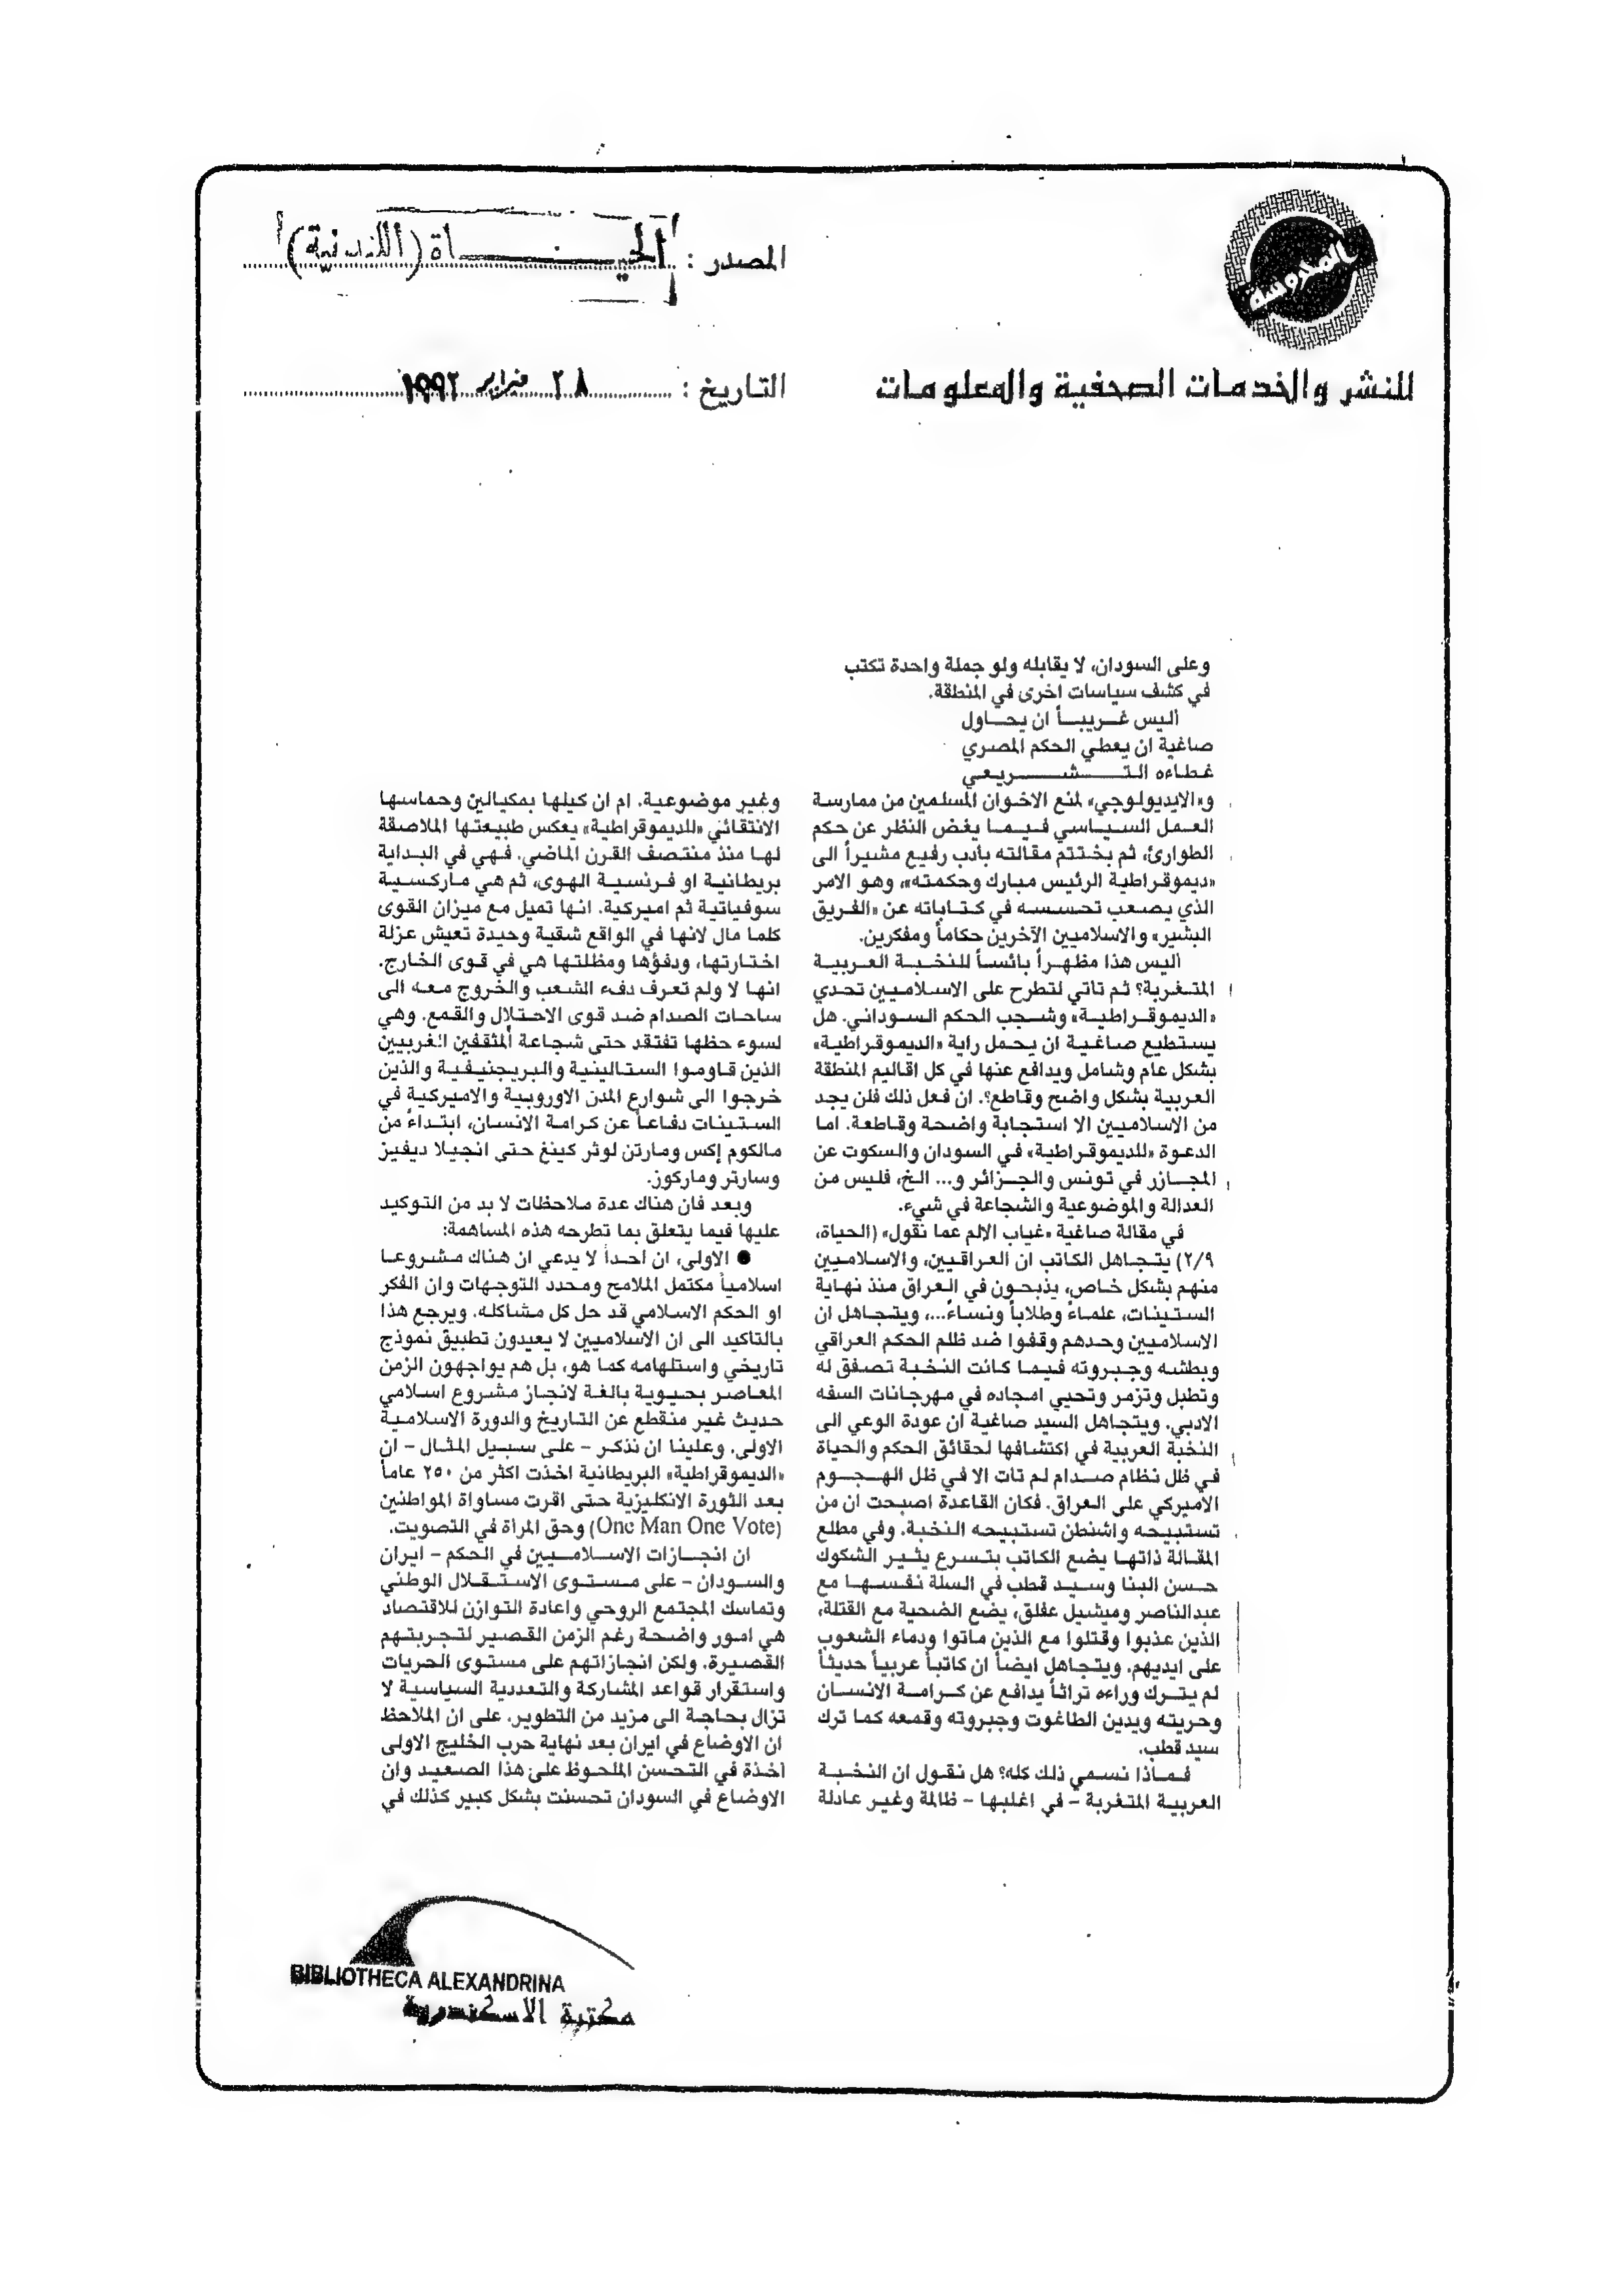 المصدر : الحيـاة (اللندنية)
التاريخ : ٢٨ فبراير ١٩٩٢
المحروسة
للنشر والخدمات الصحفية والمعلومات
وعلى السودان، لا يقابله ولو جملة واحدة تكتب
في كشف سياسات اخرى في المنطقة.
أليس غريباً ان يحاول
صاغية ان يعطي الحكم المصري
غطاءه التشريعي
و«الايديولوجي» لمنع الاخوان المسلمين من ممارسة
العمل السياسي فيما يغض النظر عن حكم
الطوارئ، ثم يختتم مقالته بأدب رفيع مشيراً الى
«ديموقراطية الرئيس مبارك وحكمته»، وهو الامر
الذي يصعب تحسسه في كتاباته عن «الفريق
البشير» والاسلاميين الآخرين حكاماً ومفكرين.
أليس هذا مظهراً بائساً للنخبة العربية
المتغربة؟ ثم تأتي لتطرح على الاسلاميين تحدي
«الديموقراطية» وشجب الحكم السوداني. هل
يستطيع صاغية ان يحمل راية «الديموقراطية»
بشكل عام وشامل ويدافع عنها في كل اقاليم المنطقة
العربية بشكل واضح وقاطع؟. ان فعل ذلك فلن يجد
من الاسلاميين الا استجابة واضحة وقاطعة. اما
الدعوة «للديموقراطية» في السودان والسكوت عن
المجازر في تونس والجزائر و... الخ، فليس من
العدالة والموضوعية والشجاعة في شيء.
في مقالة صاغية «غياب الالم عما نقول» (الحياة،
٢/٩) يتجاهل الكاتب ان العراقيين، والاسلاميين
منهم بشكل خاص، يذبحون في العراق منذ نهاية
الستينات، علماءً وطلاباً ونساءً...، ويتجاهل ان
الاسلاميين وحدهم وقفوا ضد ظلم الحكم العراقي
وبطشه وجبروته فيما كانت النخبة تصفق له
وتطبل وتزمر وتحيي امجاده في مهرجانات السفه
الادبي. ويتجاهل السيد صاغية ان عودة الوعي الى
النخبة العربية في اكتشافها لحقائق الحكم والحياة
في ظل نظام صدام لم تأت الا في ظل الهجوم
الاميركي على العراق. فكان القاعدة اصبحت ان من
تستبيحه واشنطن تستبيحه النخبة. وفي مطلع
المقالة ذاتها يضع الكاتب بتسرع يثير الشكوك
حسن البنا وسيد قطب في السلة نفسها مع
عبدالناصر وميشيل عفلق، يضع الضحية مع القتلة،
الذين عذبوا وقتلوا مع الذين ماتوا ودماء الشعوب
على ايديهم. ويتجاهل ايضاً ان كاتباً عربياً حديثاً
لم يترك وراءه تراثاً يدافع عن كرامة الانسان
وحريته ويدين الطاغوت وجبروته وقمعه كما ترك
سيد قطب.
فماذا نسمي ذلك كله؟ هل نقول ان النخبة
العربية المتغربة - في اغلبها - ظالمة وغير عادلة
وغير موضوعية. ام ان كيلها بمكيالين وحماسها
الانتقائي «للديموقراطية» يعكس طبيعتها الملاصقة
لها منذ منتصف القرن الماضي. فهي في البداية
بريطانية او فرنسية الهوى، ثم هي ماركسية
سوفياتية ثم اميركية. انها تميل مع ميزان القوى
كلما مال لانها في الواقع شقية وحيدة تعيش عزلة
اختارتها، ودفؤها ومظلتها هي في قوى الخارج.
انها لا ولم تعرف دفء الشعب والخروج معه الى
ساحات الصدام ضد قوى الاحتلال والقمع. وهي
لسوء حظها تفتقد حتى شجاعة المثقفين الغربيين
الذين قاوموا الستالينية والبريجنيفية والذين
خرجوا الى شوارع المدن الاوروبية والاميركية في
الستينات دفاعاً عن كرامة الانسان، ابتداءً من
مالكوم إكس ومارتن لوثر كينغ حتى انجيلا ديفيز
وسارتر وماركوز.
وبعد فان هناك عدة ملاحظات لا بد من التوكيد
عليها فيما يتعلق بما تطرحه هذه المساهمة:
● الاولى، ان احداً لا يدعي ان هناك مشروعاً
اسلامياً مكتمل الملامح ومحدد التوجهات وان الفكر
او الحكم الاسلامي قد حل كل مشاكله. ويرجع هذا
بالتأكيد الى ان الاسلاميين لا يعيدون تطبيق نموذج
تاريخي واستلهامه كما هو، بل هم يواجهون الزمن
المعاصر بحيوية بالغة لانجاز مشروع اسلامي
حديث غير منقطع عن التاريخ والدورة الاسلامية
الاولى. وعلينا ان نذكر - على سبيل المثال - ان
«الديموقراطية» البريطانية اخذت اكثر من ٢٥٠ عاماً
بعد الثورة الانكليزية حتى اقرت مساواة المواطنين
(One Man One Vote) وحق المرأة في التصويت.
ان انجازات الاسلاميين في الحكم - ايران
والسودان - على مستوى الاستقلال الوطني
وتماسك المجتمع الروحي واعادة التوازن للاقتصاد
هي امور واضحة رغم الزمن القصير لتجربتهم
القصيرة. ولكن انجازاتهم على مستوى الحريات
واستقرار قواعد المشاركة والتعددية السياسية لا
تزال بحاجة الى مزيد من التطوير. على ان الملاحظ
ان الاوضاع في ايران بعد نهاية حرب الخليج الاولى
آخذة في التحسن الملحوظ على هذا الصعيد وان
الاوضاع في السودان تحسنت بشكل كبير كذلك في
BIBLIOTHECA ALEXANDRINA
مكتبة الاسكندرية